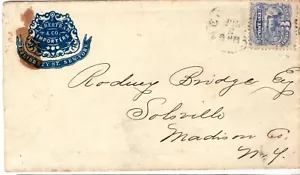 & CO.
IMPORTERS
LIBERTY ST. NEW YORK
Rodney Bridge Esq
Solsville
Madison Co.
N.Y.